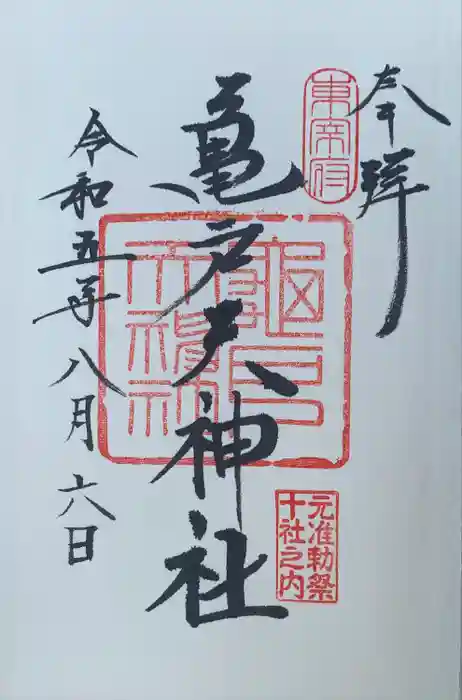 奉拝
東帝府
亀戸天神社
亀戸
天神社
元准勅祭
十社之内
令和五年八月六日